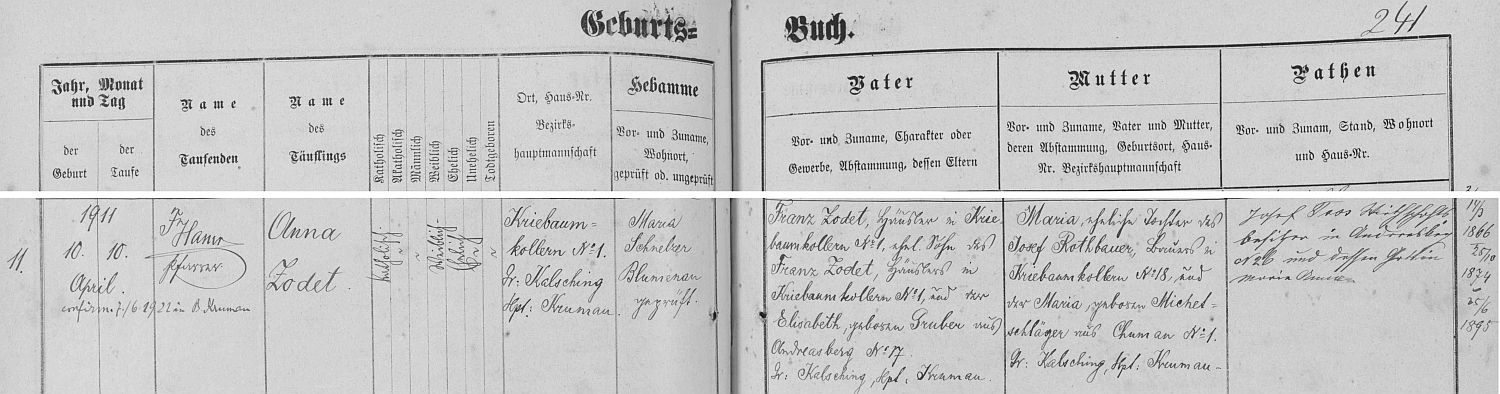 Geburts=
Buch.
241
Jahr, Monat
und Tag
der
Geburt
der
Taufe
Name
des
Taufenden
Name
des
Täuflings
Katholisch
Akatholisch
Männlich
Weiblich
Ehelich
Unehelich
Todtgeboren
Ort, Haus-Nr.
Bezirks-
hauptmannschaft
Hebamme
Vor- und Zuname,
Wohnort,
geprüft od. ungeprüft
Vater
Vor- und Zuname, Charakter oder
Gewerbe, Abstammung, dessen Eltern
Mutter
Vor- und Zuname, Vater und Mutter,
deren Abstammung, Geburtsort, Haus-
Nr. Bezirkshauptmannschaft
Pathen
Vor- und Zunam, Stand, Wohnort
und Haus-Nr.
11.
1911
10. 10.
April.
7./6. 1922 in B. Krumau
Pfarrer
Anna
Zodet.
Kriebaum=
kollern No 1.
Gr: Kalsching
Hpt: Krumau.
Maria
Blumenau
geprüft.
Franz Zodet, Häusler in Krie
baumkollern No 1, ehel. Sohn des
Franz Zodet, Häuslers in
Kriebaumkollern No 1, und der
Elisabeth, geboren Gruber aus
Andreasberg No 17.
Gr: Kalsching, Hpt: Krumau.
Maria, eheliche Tochter des
Josef Rothbauer, Bauers in
Kriebaumkollern No 18, und
der Maria, geboren Michet-
schläger aus Chumau No 1.
Gr: Kalsching, Hpt: Krumau-
Josef
besitzer in Andreasberg
und dessen Gattin
14/3
1866
1874
25/6
1895